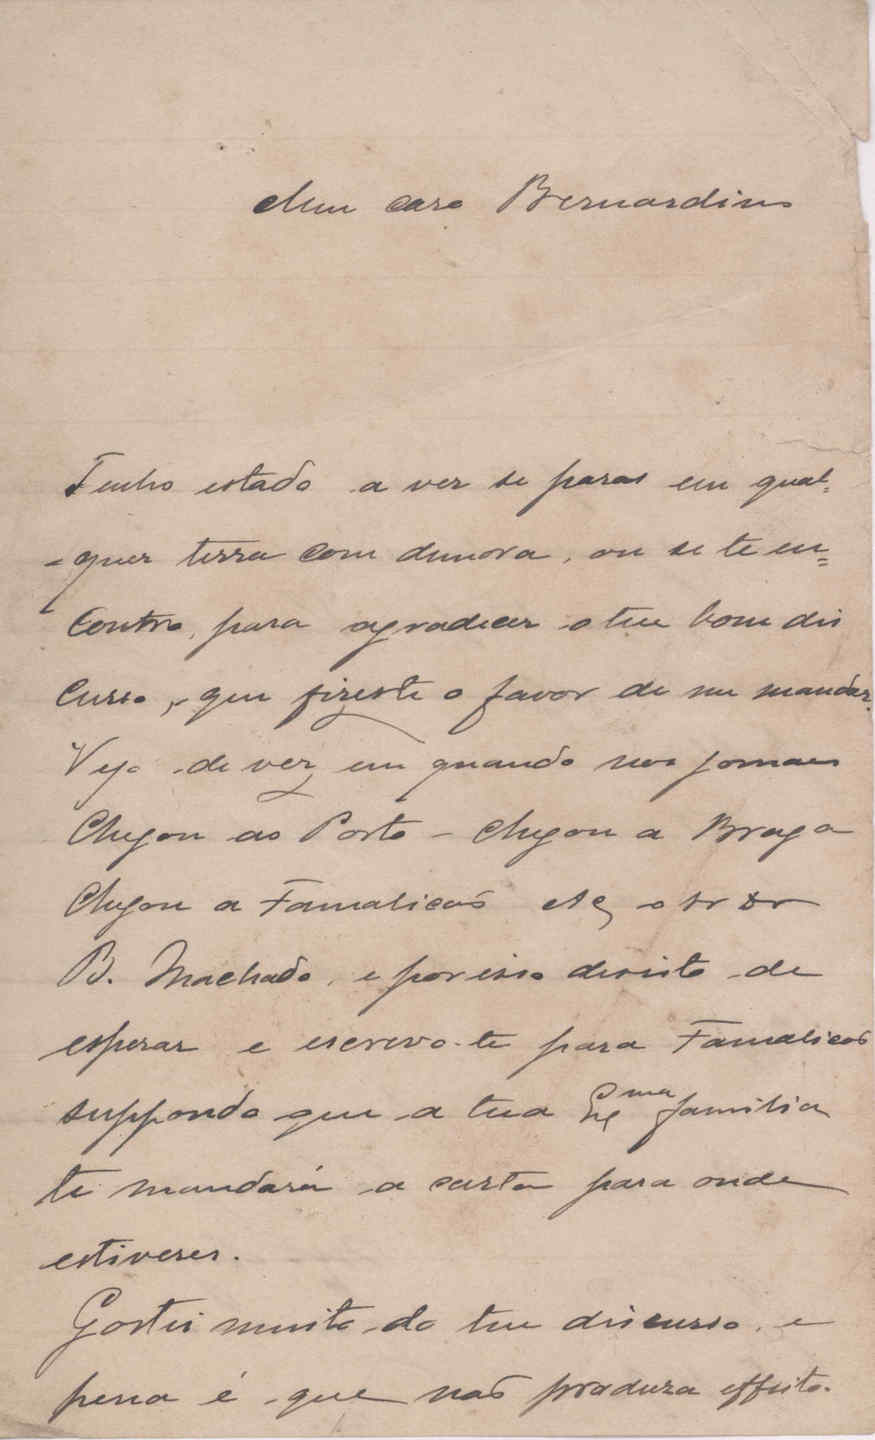 Meu caro Bernardino
Tenho estado a ver se paras em qual=
-quer terra com demora, ou se te en=
contro, para agradecer o teu bom dis
curso, que fizeste o favor de me mandar.
Vejo de vez em quando nos jornaes
Chegou ao Porto - chegou a Braga
Chegou a Famalicaõ etc, o Sr Dr
B. Machado, e por isso desisto de
esperar e escrevo-te para Famalicaõ
suppondo que a tua Exma familia
te mandará a carta para onde
estiveres.
Gostei muito do teu discurso, e
pena é que naõ produza effeito.